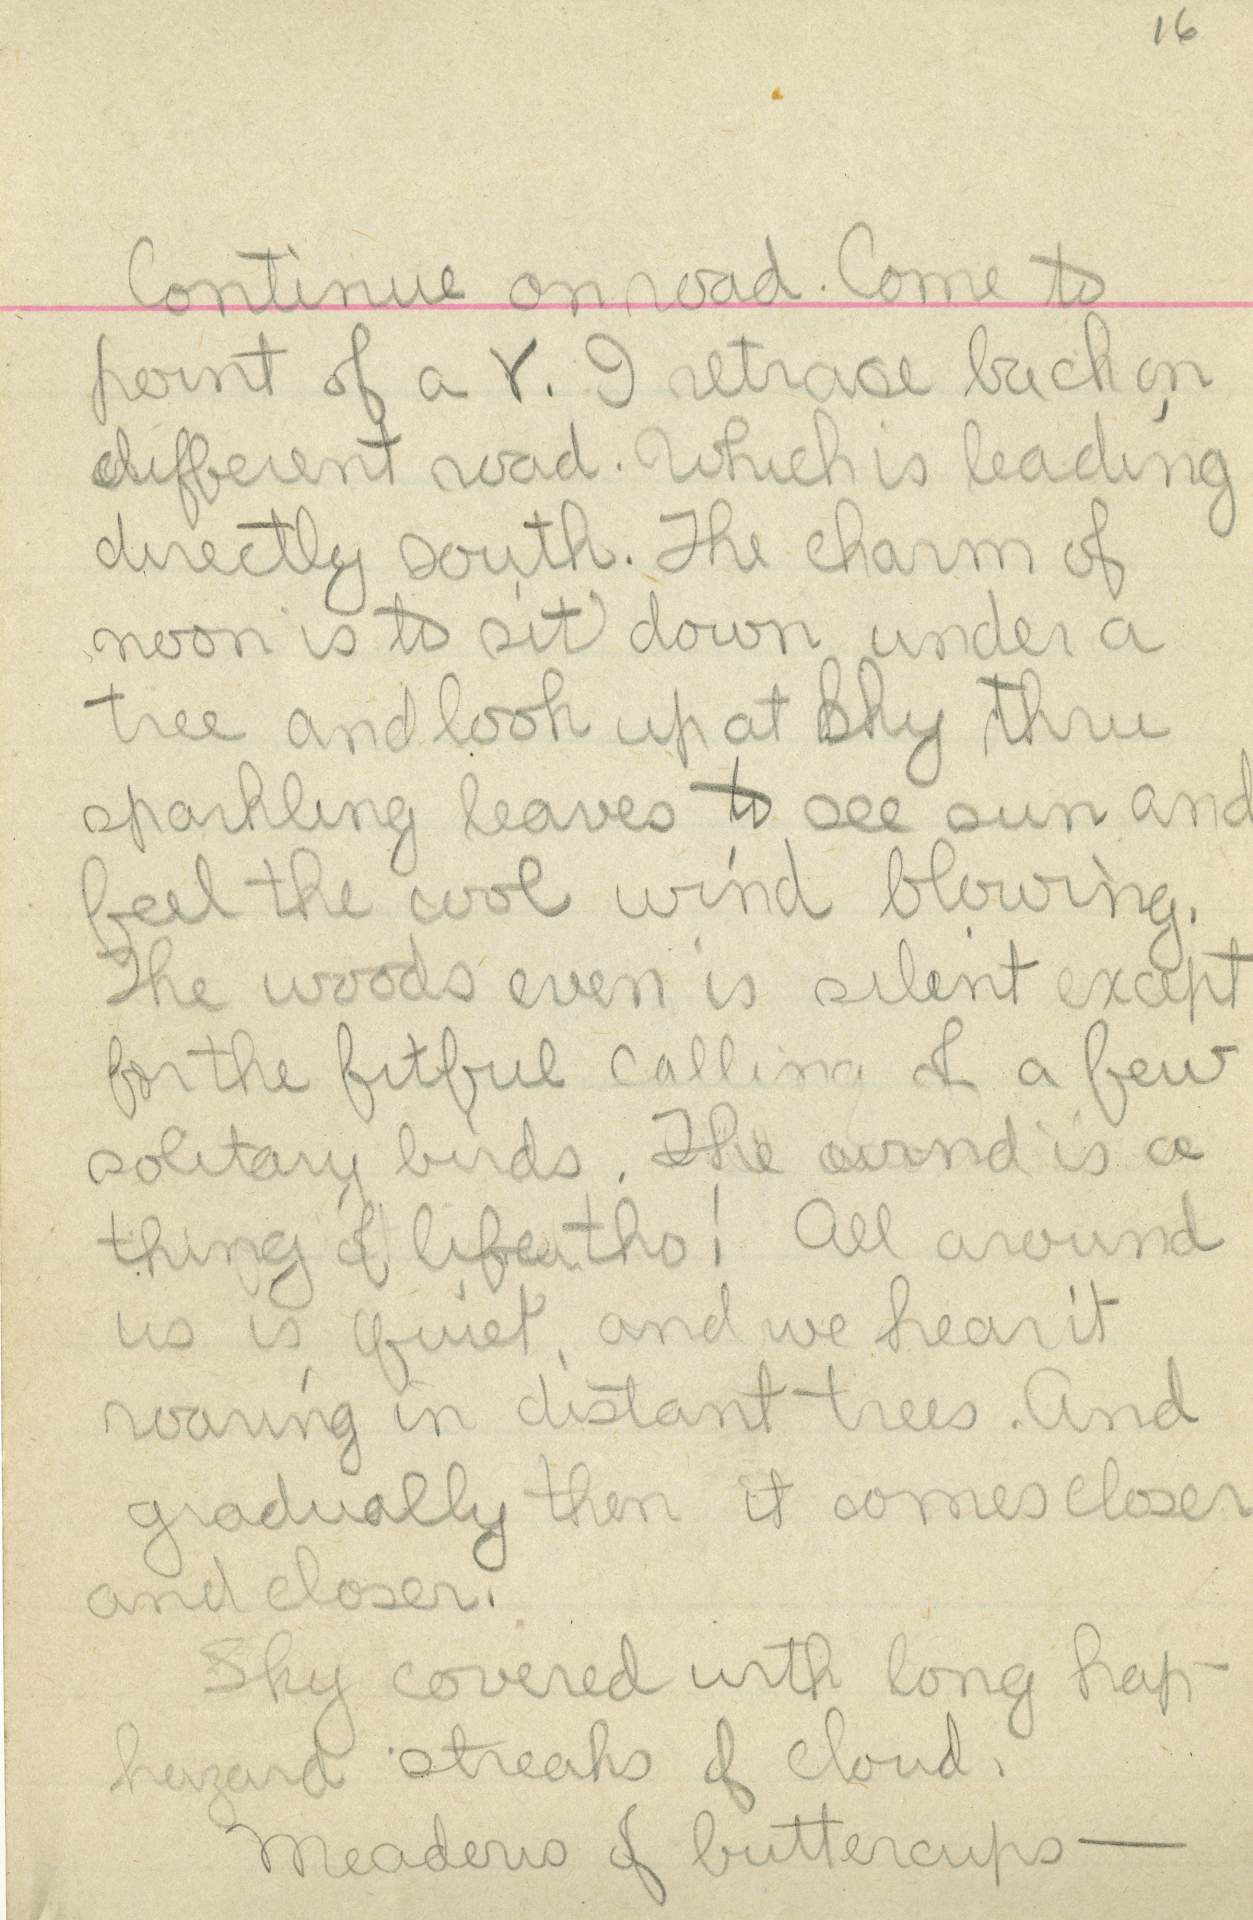 16
Continue on road. Come to
point of a Y. I retrace back on
different road. Which is leading
directly south. The charm of
noon is to sit down under a
tree and look up at sky thru
sparkling leaves to see sun and
feel the cool wind blowing.
The woods even is silent except
for the fitful calling of a few
solitary birds. The wind is a
thing of life tho! All around
us is quiet, and we hear it
roaring in distant trees. And
gradually then it comes closer
and closer.
Sky covered with long hap-
hazard streaks of cloud.
Meadows of buttercups —